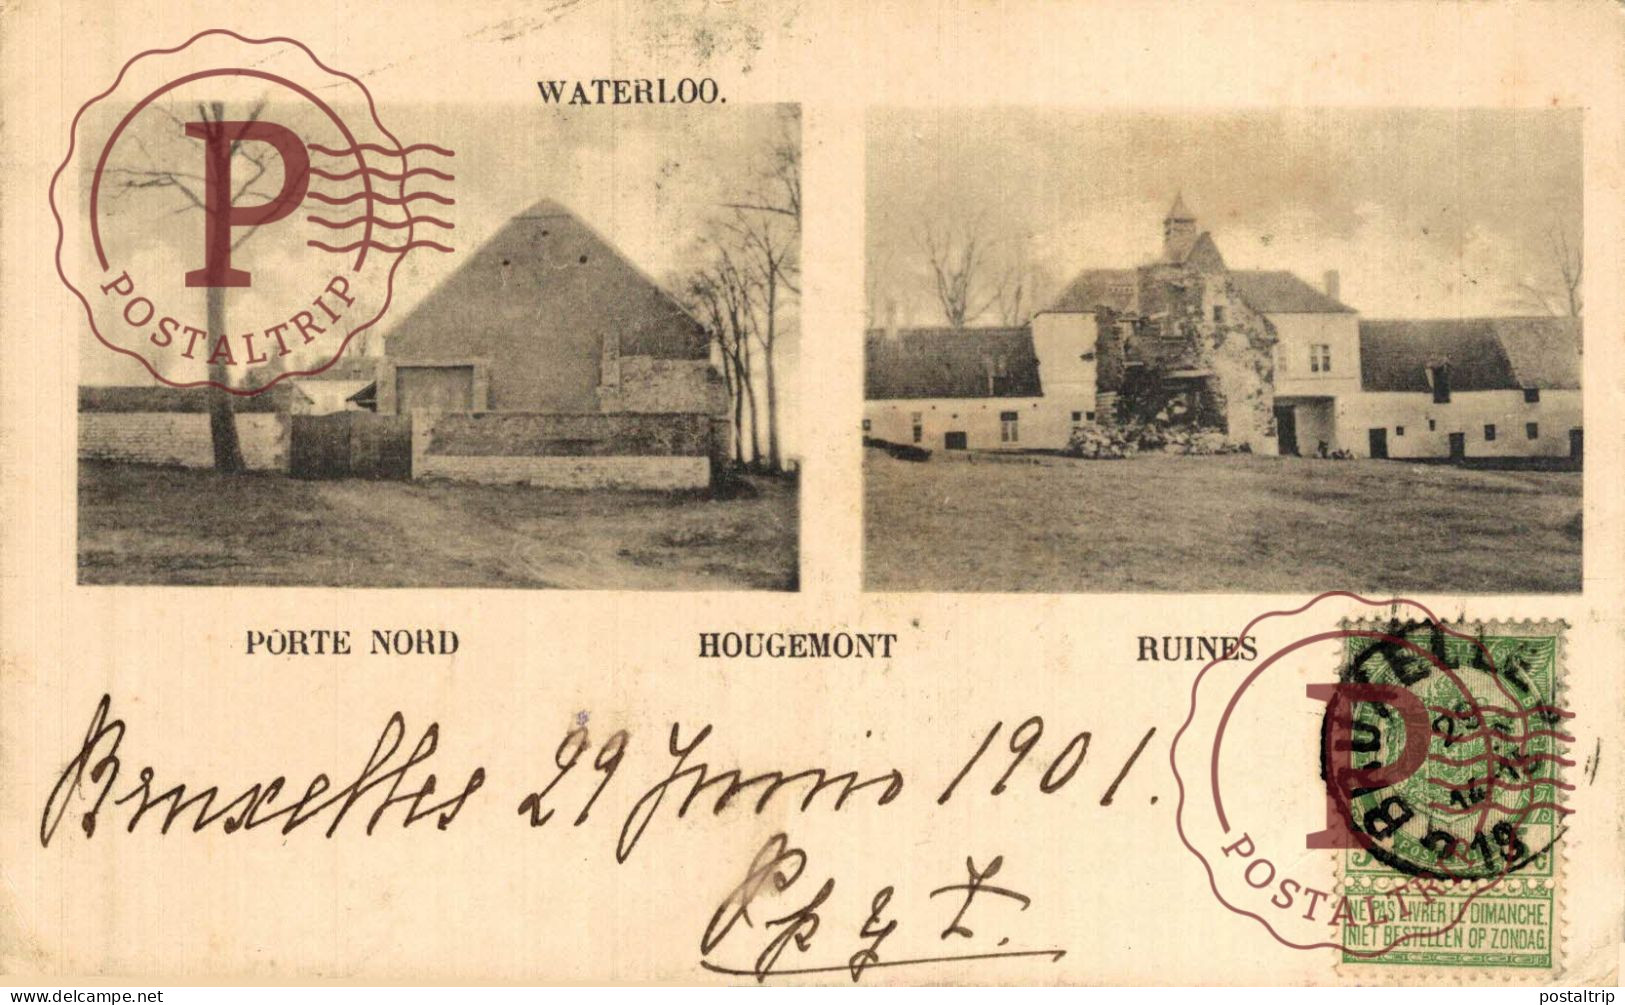 WATERLOO.
P
POSTALTRIP
PORTE NORD
HOUGEMONT
RUINES
Bruxelles 29 Junio 1901.
P
POSTALTRIP
BRUXELLES
NE PAS LIVRER LE DIMANCHE.
NIET BESTELLEN OP ZONDAG.
www.delcampe.net
postaltrip